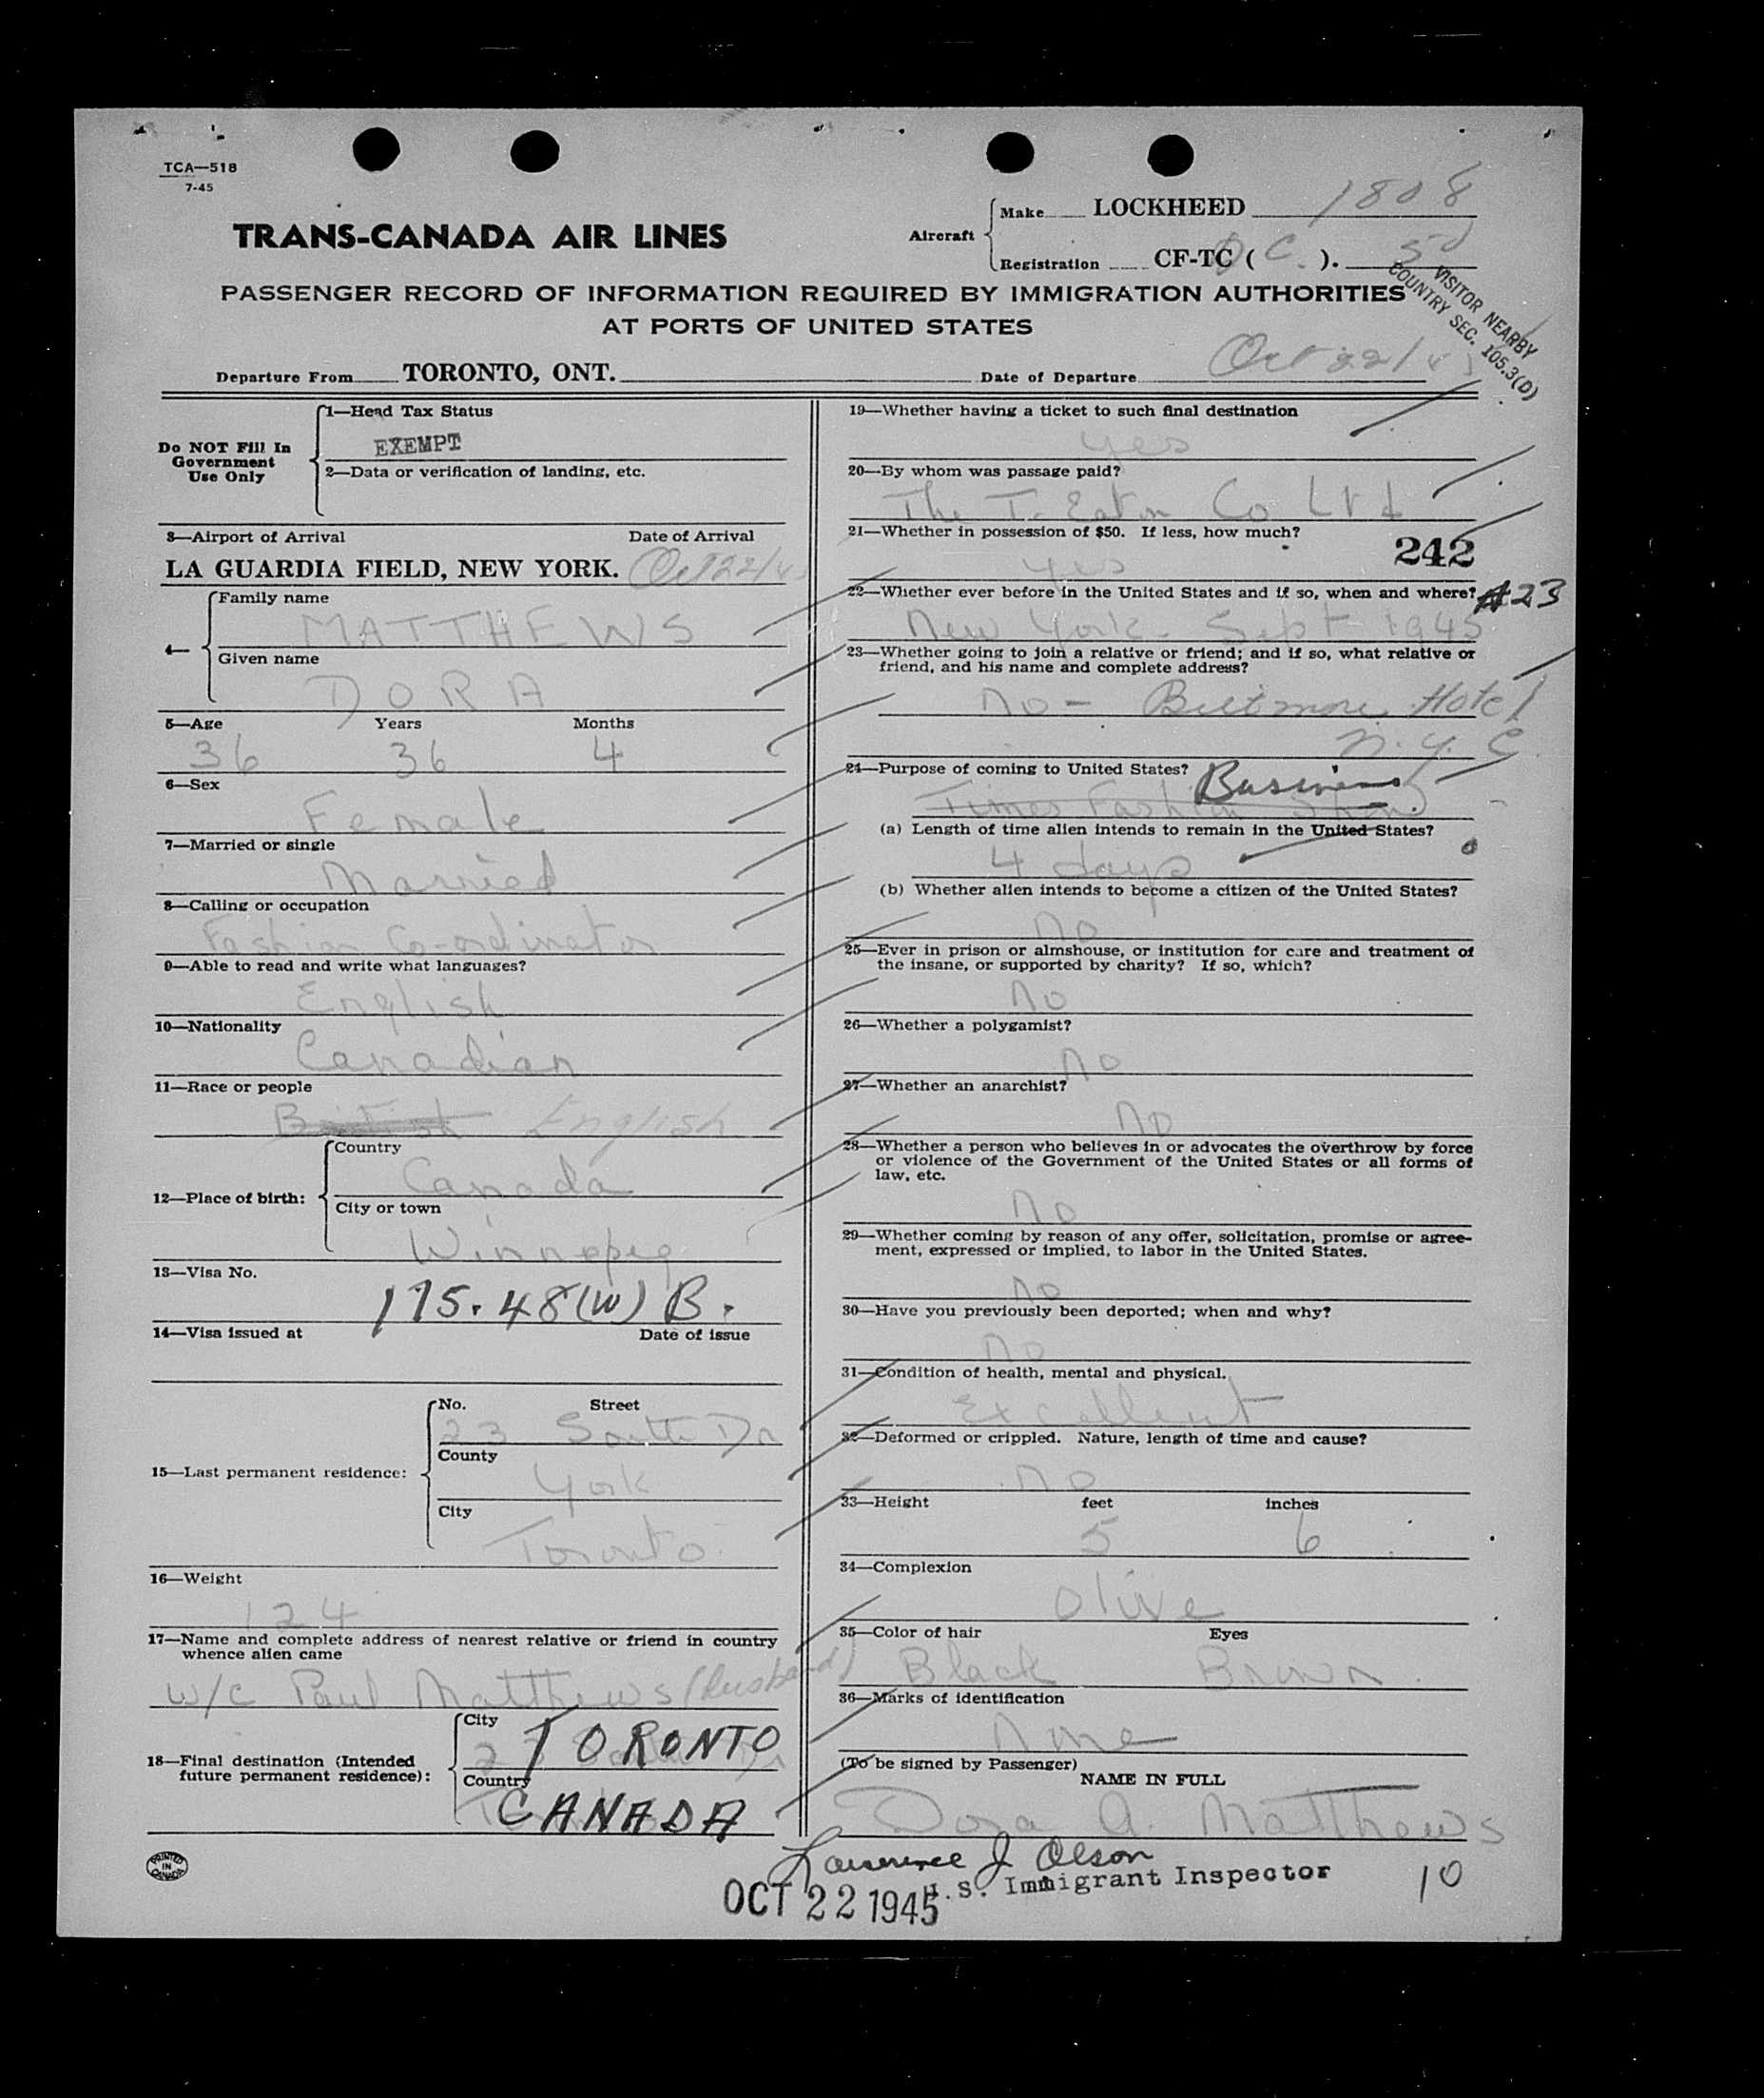 TCA—518
7-45
TRANS-CANADA AIR LINES
Aircraft
Make LOCKHEED 1808
Registration CF-TC ( C. ). 50
VISITOR NEARBY
COUNTRY SEC. 105.3(D)
PASSENGER RECORD OF INFORMATION REQUIRED BY IMMIGRATION AUTHORITIES
AT PORTS OF UNITED STATES
Departure From TORONTO, ONT. Date of Departure Oct 22/45
Do NOT Fill In
Government
Use Only
1—Head Tax Status
EXEMPT
2—Data or verification of landing, etc.
3—Airport of Arrival Date of Arrival
LA GUARDIA FIELD, NEW YORK. Oct 22/45
4—
Family name
MATTHEWS
Given name
DORA
5—Age Years Months
36 36 4
6—Sex
Female
7—Married or single
Married
8—Calling or occupation
Fashion Co-ordinator
9—Able to read and write what languages?
English
10—Nationality
Canadian
11—Race or people
British English
12—Place of birth:
Country
Canada
City or town
Winnepeg
13—Visa No.
175.48(W) B.
14—Visa issued at Date of issue
15—Last permanent residence:
No. Street
23 South Dr
County
York
City
Toronto
16—Weight
124
17—Name and complete address of nearest relative or friend in country
whence alien came
w/c Paul Matthews (Husband)
18—Final destination (Intended
future permanent residence):
City
TORONTO
Country
CANADA
PRINTED
IN
CANADA
19—Whether having a ticket to such final destination
yes
20—By whom was passage paid?
The T. Eaton Co Ltd
21—Whether in possession of $50. If less, how much?
242
yes
22—Whether ever before in the United States and if so, when and where?
#23
New York - Sept 1945
23—Whether going to join a relative or friend; and if so, what relative or
friend, and his name and complete address?
no - Biltmore Hotel
N.Y.C.
24—Purpose of coming to United States? Business
Times Fashion Show
(a) Length of time alien intends to remain in the United States?
4 days
(b) Whether alien intends to become a citizen of the United States?
no
25—Ever in prison or almshouse, or institution for care and treatment of
the insane, or supported by charity? If so, which?
no
26—Whether a polygamist?
no
27—Whether an anarchist?
no
28—Whether a person who believes in or advocates the overthrow by force
or violence of the Government of the United States or all forms of
law, etc.
no
29—Whether coming by reason of any offer, solicitation, promise or agree-
ment, expressed or implied, to labor in the United States.
no
30—Have you previously been deported; when and why?
no
31—Condition of health, mental and physical.
Excellent
32—Deformed or crippled. Nature, length of time and cause?
no
33—Height feet inches
5 6
34—Complexion
olive
35—Color of hair Eyes
Black Brown
36—Marks of identification
None
(To be signed by Passenger)
NAME IN FULL
Dora A. Matthews
Lawrence J Olson
U.S. Immigrant Inspector
OCT 22 1945
10